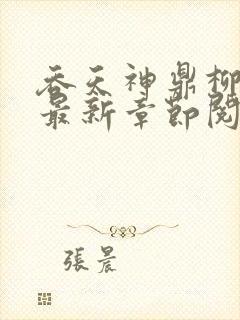 吞天神鼎柳
最新章節閱
張晨